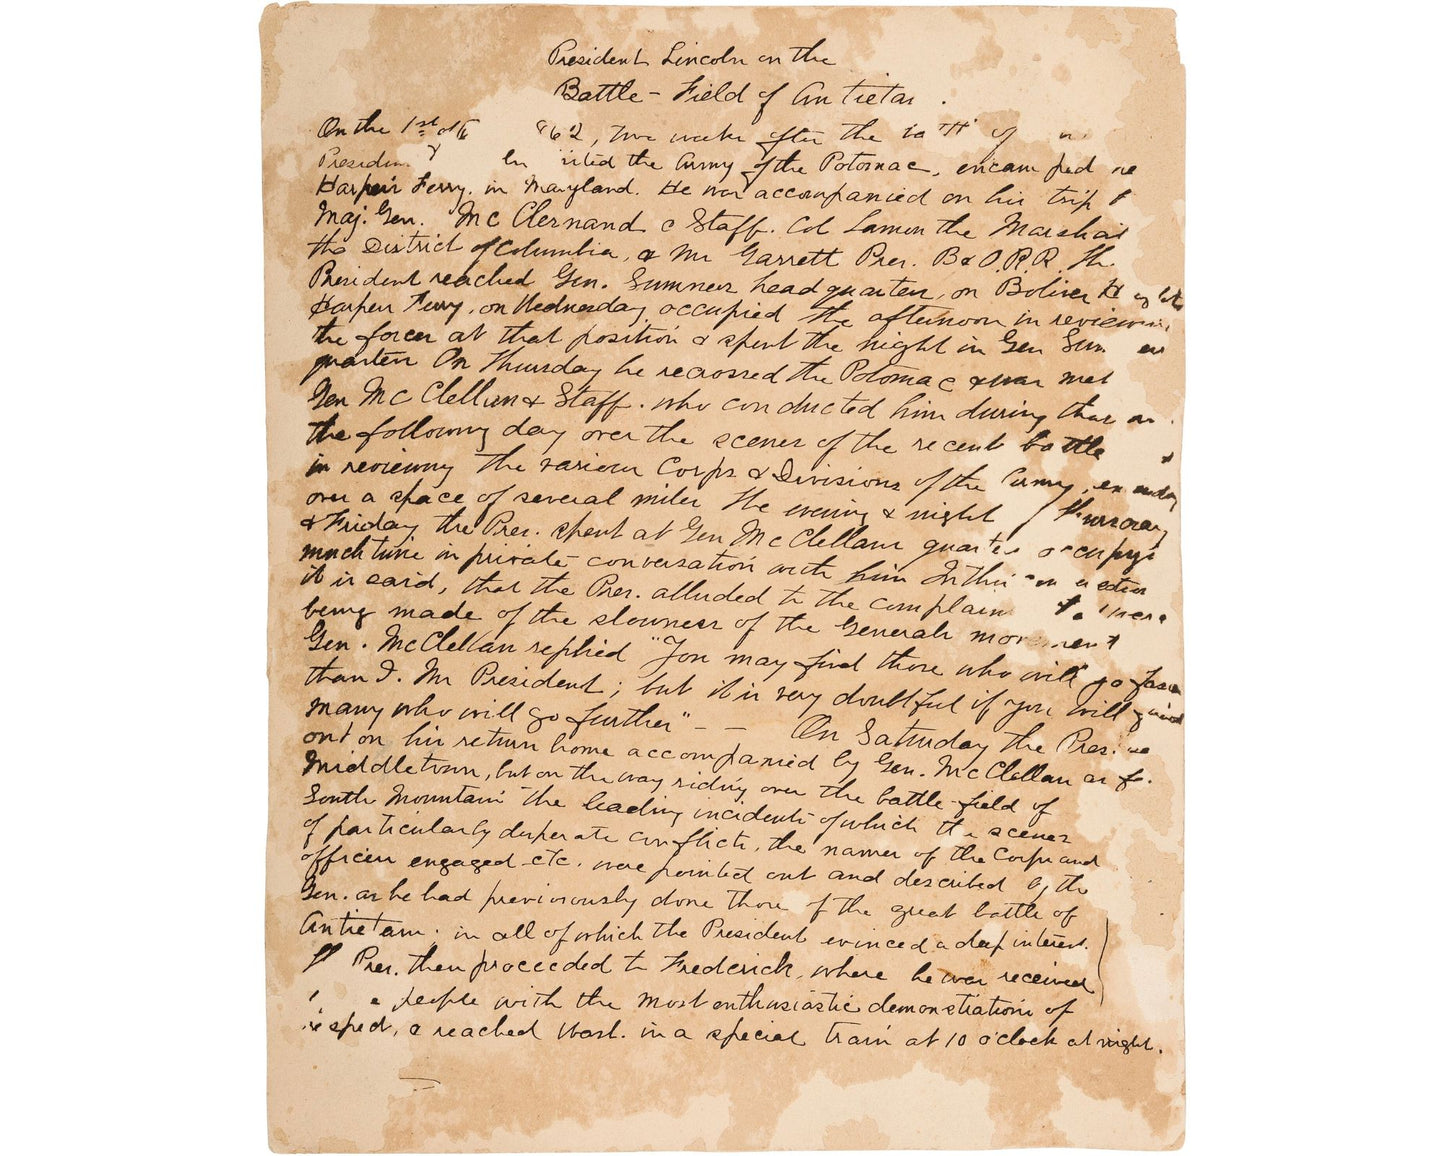 President Lincoln on the
Battle-Field of Antietam.
On the 1st of 62, two weeks after the of
President the Army of the Potomac, encamped
Harper's Ferry, in Maryland. He was accompanied on his trip
Maj. Gen. McClernand & Staff. Col Lamon the Marshal
the District of Columbia, & Mr Garrett Pres. B & O.R.R. The
President reached Gen. Sumners headquarters, on Boliver
Harpers Ferry, on Wednesday, occupied the afternoon in reviewing
the forces at that position & spent the night in Gen Sum
quarters On Thursday he recrossed the Potomac & was met
Gen McClellan & Staff. who conducted him during that
the following day over the scenes of the recent battle &
in reviewing the various Corps & Divisions of the Army,
over a space of several miles The evening & night Thursday
& Friday the Pres. spent at Gen McClellans quarters occupy
much time in private conversation with him In this
it is said, that the Pres. alluded to the complain were
being made of the slowness of the Generals movement
Gen. McClellan replied "You may find those who will go faster
than I. Mr President; but it is very doubtful if you will find
many who will go further" - - On Saturday the Pres.
out on his return home accompanied by Gen. McClellan as f
Middletown, but on the way riding over the battle-field of
South Mountain the leading incidents of which the scenes
of particularly desperate conflicts, the names of the Corps and
officers engaged etc. were pointed out and described by the
Gen. as he had previously done those of the great battle of
Antietam. in all of which the President evinced a deep interest.
Pres. then proceeded to Frederick, where he was received
people with the most enthusiastic demonstrations of
respect, & reached Wash. in a special train at 10 o'clock at night.